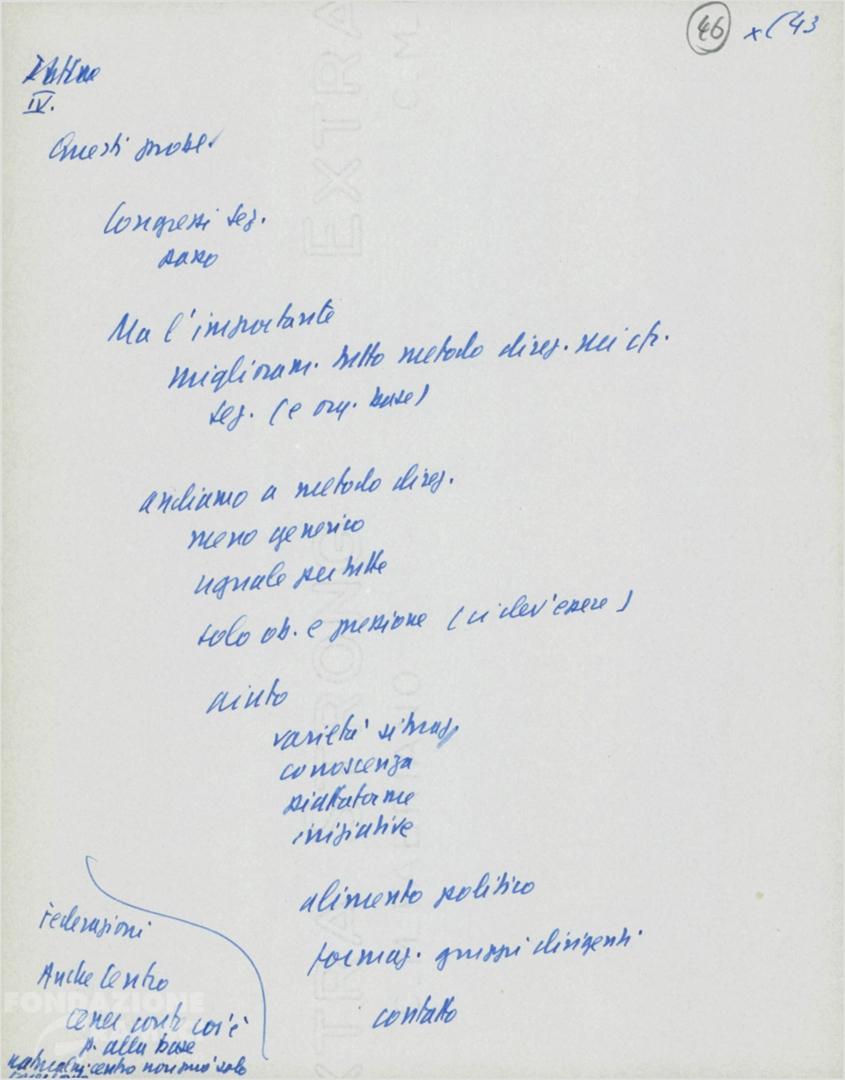 46 x (43
IV.
Questi probl.
Congressi sez.
passo
Ma l'importante
miglioram. tutto metodo direz. nei cfr.
sez. (e org. base)
andiamo a metodo direz.
meno generico
uguale per tutte
solo ob. e pressione (ci dev'essere)
aiuto
varietà situaz.
conoscenza
piattaforme
iniziative
alimento politico
formaz. gruppi dirigenti
contatto
Federazioni
Anche Centro
cos'è
p. alla base
centro non può solo
FONDAZIONE
EXTRA STRONG
EXTRA